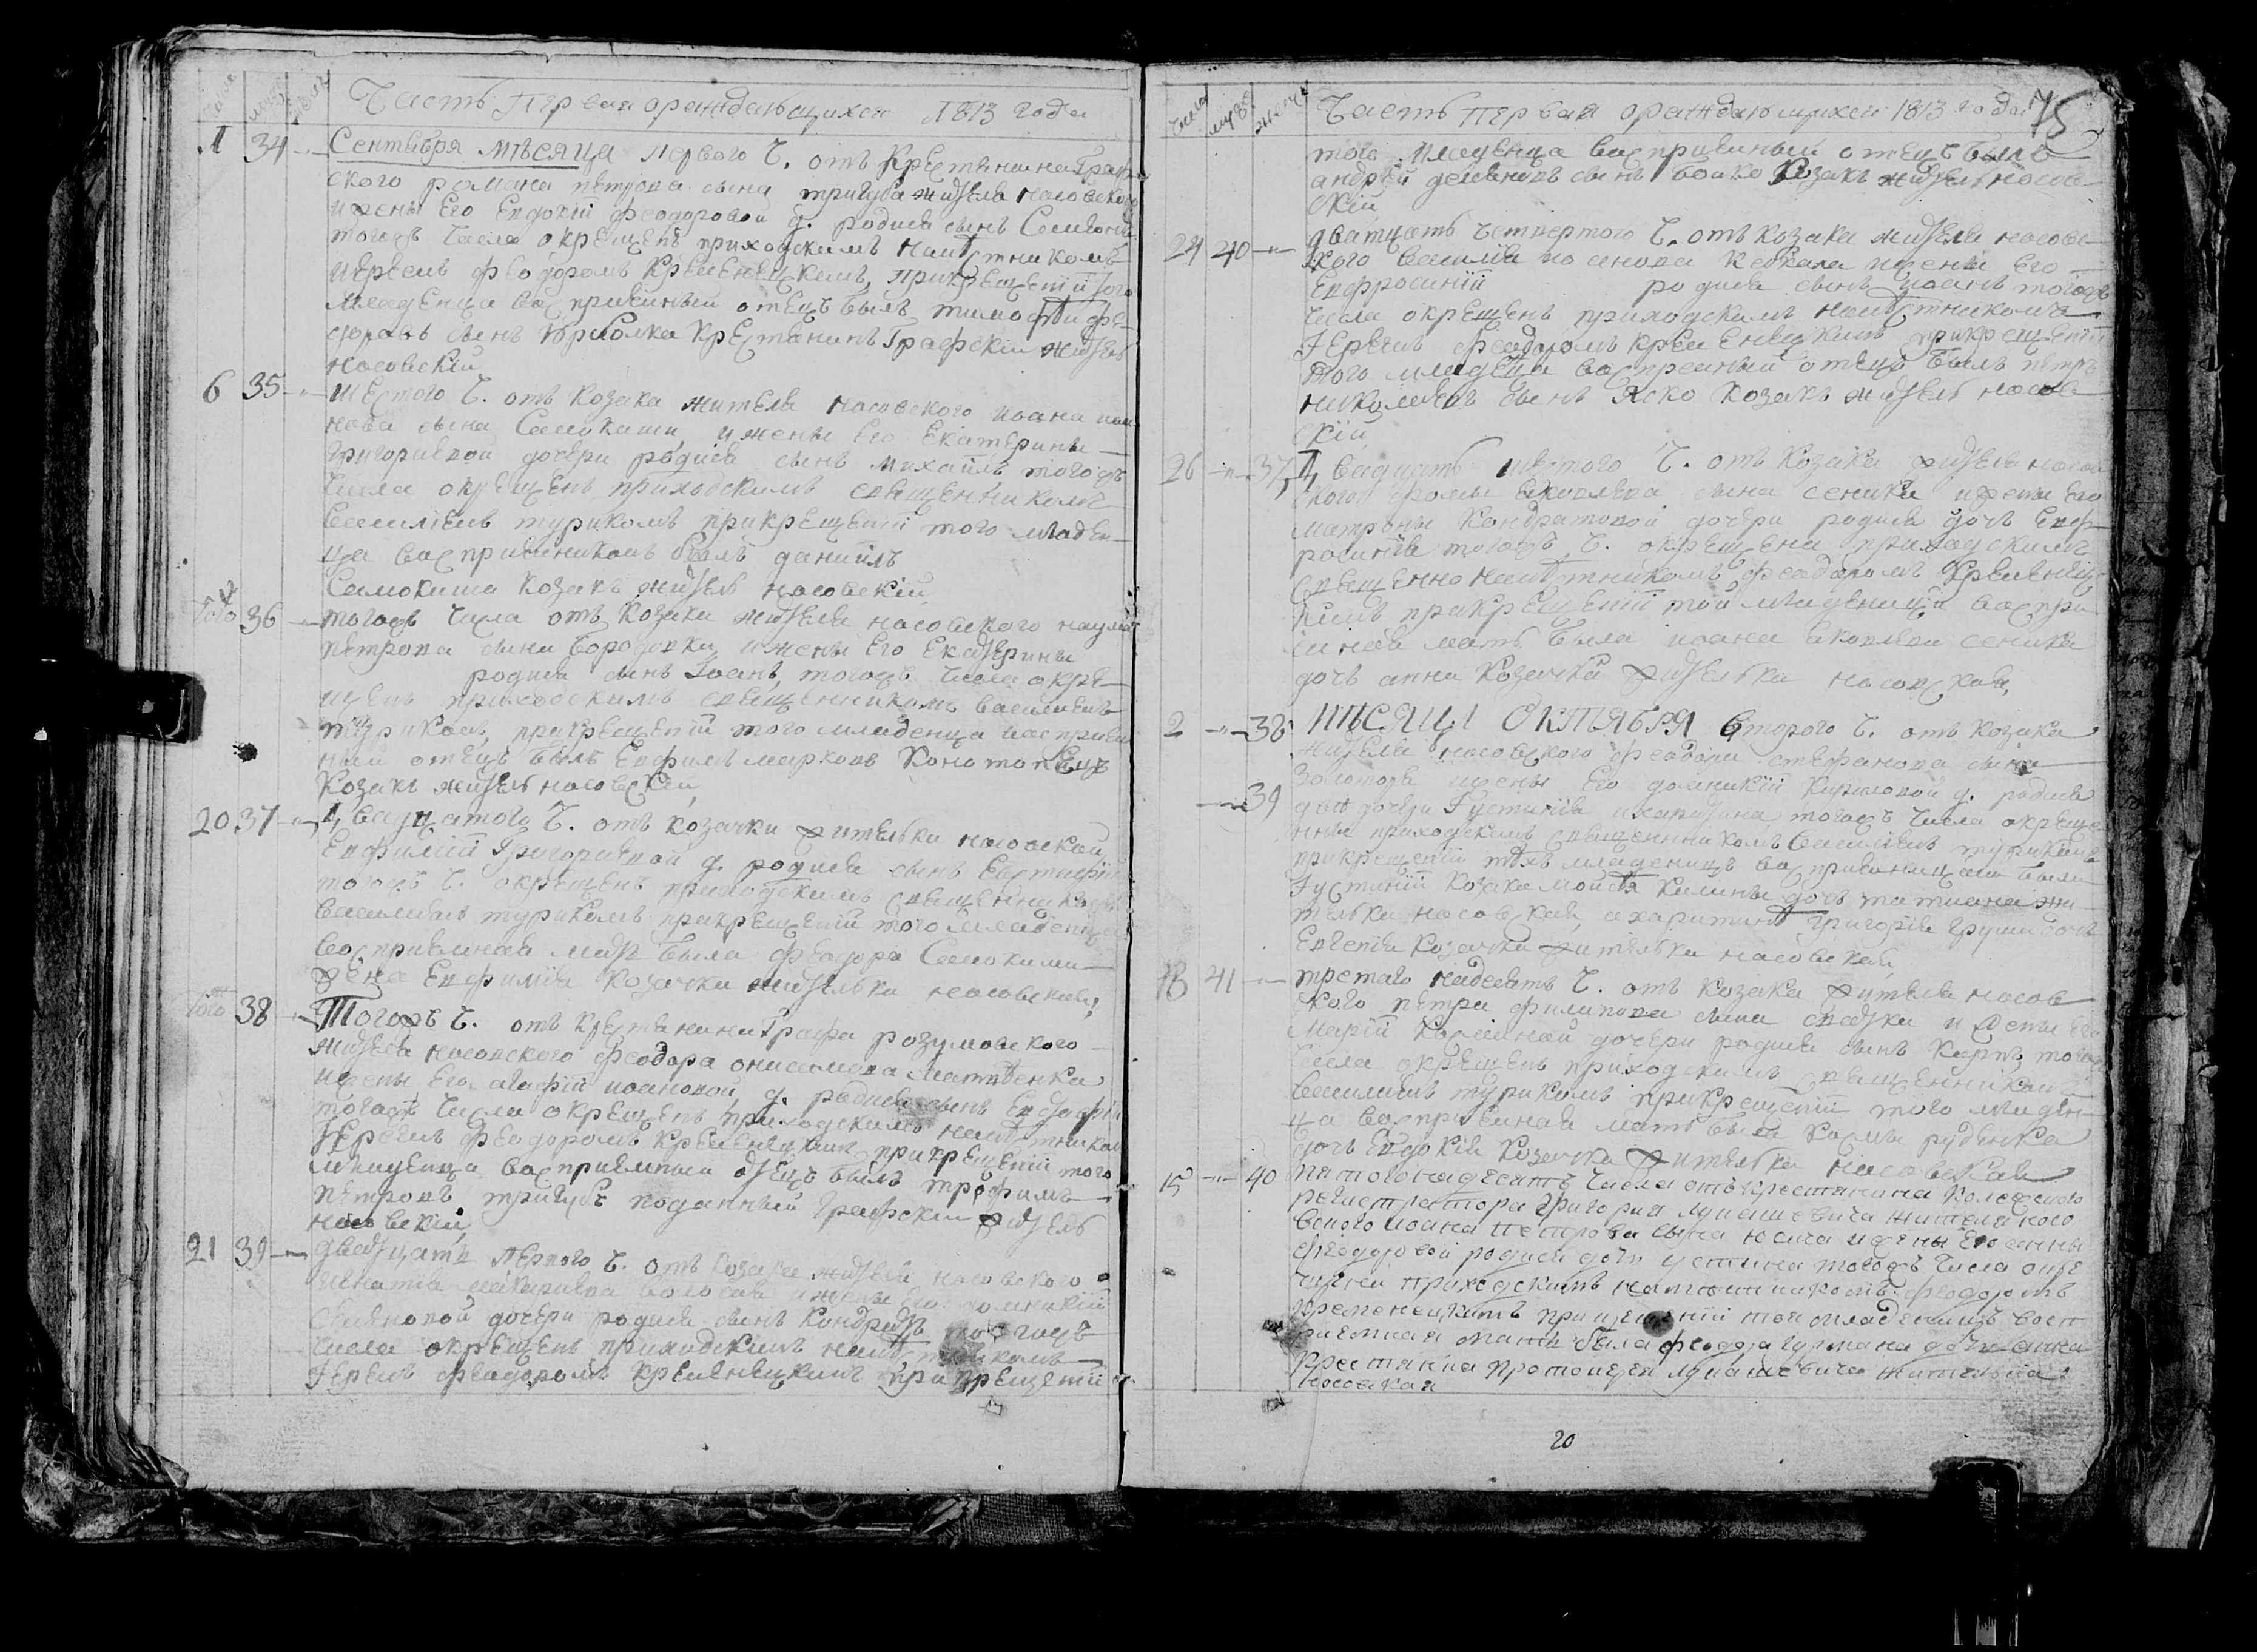 Часть первая ораждающихся 1813 года
1 34 Сентября мѣсяца первого ч. отъ крестянина Граф
ского романа петрова сына тригуба жителя носовского
и жены Его Евдокіи феодоровой д. родися сынъ Семіонъ
тогожъ числа окрещенъ приходскимъ намѣстникомъ
Иереемъ феодоромъ Кременецкимъ, прикрещеніи того
младенца воспріимный отецъ былъ тимофей фео
доровъ сынъ крестянинъ Графскій житель
носовскій
6 35 шестого ч. отъ козака жителя носовского иоана иоа
нова сына Самокиши, и жены Его Екатерины
григориевой дочери родися сынъ михаилъ тогожъ
числа окрещенъ приходскимъ священникомъ
василиемъ турикомъ прикрещеніи того младен
ца воспріимникомъ былъ даниилъ
Самокиша козакъ житель носовскій
того 36 тогожъ числа отъ козака жителя носовского наума
петрова сына бородавки и жены Его Екатерины
родися сынъ Іоанъ, тогожъ числа окре
щенъ приходскимъ священникомъ василиемъ
турикомъ, прикрещеніи того младенца восприем
ный отецъ былъ Ефимъ марковъ Конотопецъ
Козакъ житель носовскій
20 37 двадцатого ч. отъ козачки жителки носовской
Евфиміи Григориевой д. родися сынъ Евстафій
тогожъ ч. окрещенъ приходскимъ священником
василиемъ турикомъ прикрещеніи того младенца
воспріимная мать была феодора Самокиши
жена Евфимія козачка жителка носовская
того 38 Тогожъ ч. отъ крестянина Графа розумовского
жителя носовского феодора онисимова матвѣенка
и жены Его агафіи иоановой д. родися сынъ Евстафій
тогожъ числа окрещенъ приходскимъ намѣстником
Иереемъ феодоромъ Кременецкимъ, прикрещеніи того
младенца воспріимный отецъ былъ трофимъ
петровъ тригубъ поданный Графскій житель
носовскій
21 39 двадцать первого ч. отъ козака жителя носовского
игнатия и жены Его домникіи
дочери родися сынъ Кондратъ тогожъ
числа окрещенъ приходскимъ намѣстникомъ
Іереемъ феодоромъ Кременецкимъ прикрещеніи
Часть первая ораждающихся 1813 года 75
того младенца воспріимный отецъ былъ
андрей сынъ бойко козакъ житель носов
скій
24 40 дватцать четвертого ч. отъ козака жителя носовс
кого василия иоанова и жены Его
Евфросиніи родися сынъ Иоанъ тогожъ
числа окрещенъ приходскимъ намѣстникомъ
Іереемъ феодоромъ Кременецкимъ прикрещеніи
того младенца воспреимный отецъ былъ петръ
николаевъ сынъ Яско козакъ житель носов
скій
26 37 двадцать шестого ч. отъ козака жителя носов
ского фомы яковлева сына сеника и жены его
матроны Кондратовой дочери родися дочъ Евф
росинія тогожъ ч. окрещена приходскимъ
священно намѣстникомъ феодоромъ Кременец
кимъ прикрещеніи той младеницы воспри
имная мать была иоана яковлева сеника
дочъ анна козачка жителка носовская
2 38 мѣсяца октября второго ч. отъ козака
жителя носовского феодора стефанова сына
золотаря и жены Его домникіи Кириловой д. родися
39 двѣ дочери Густинія и харитина тогожъ числа окреще
ны приходскимъ священникомъ василиемъ турикомъ
прикрещеніи тѣхъ младеницъ воспріимницами были
Густиніи козака мойсѣя калины дочъ татиана жи
телка носовская, а харитинѣ григорія груши дочъ
Евгенія козачка жителка носовская
13 41 третаго надесять ч. отъ козака жителя носов
ского петра филипова сына сватка и жены Его
маріи дочери родися сынъ Карпъ, тогожъ
числа окрещенъ приходскимъ священникомъ
василиемъ турикомъ прикрещеніи того младен
ца воспріимная мать была козмы руденка
дочъ Евдокія Козачка жителка носовская
15 40 пятогонадесять числа отъ крестянина колежского
регистратора григория лукашевича жителя носо
вского иоана петрова сына юсича и жены Его анны
феодоровой родися дочь устина тогожъ числа окре
щеная приходскимъ намѣсникомъ феодоромъ
кременецкимъ прищещеніи тоя младеницъ восп
риемная мать была феодора гурмана дочь анна
крестянка протоиерея лукашевича жителка
носовская
20